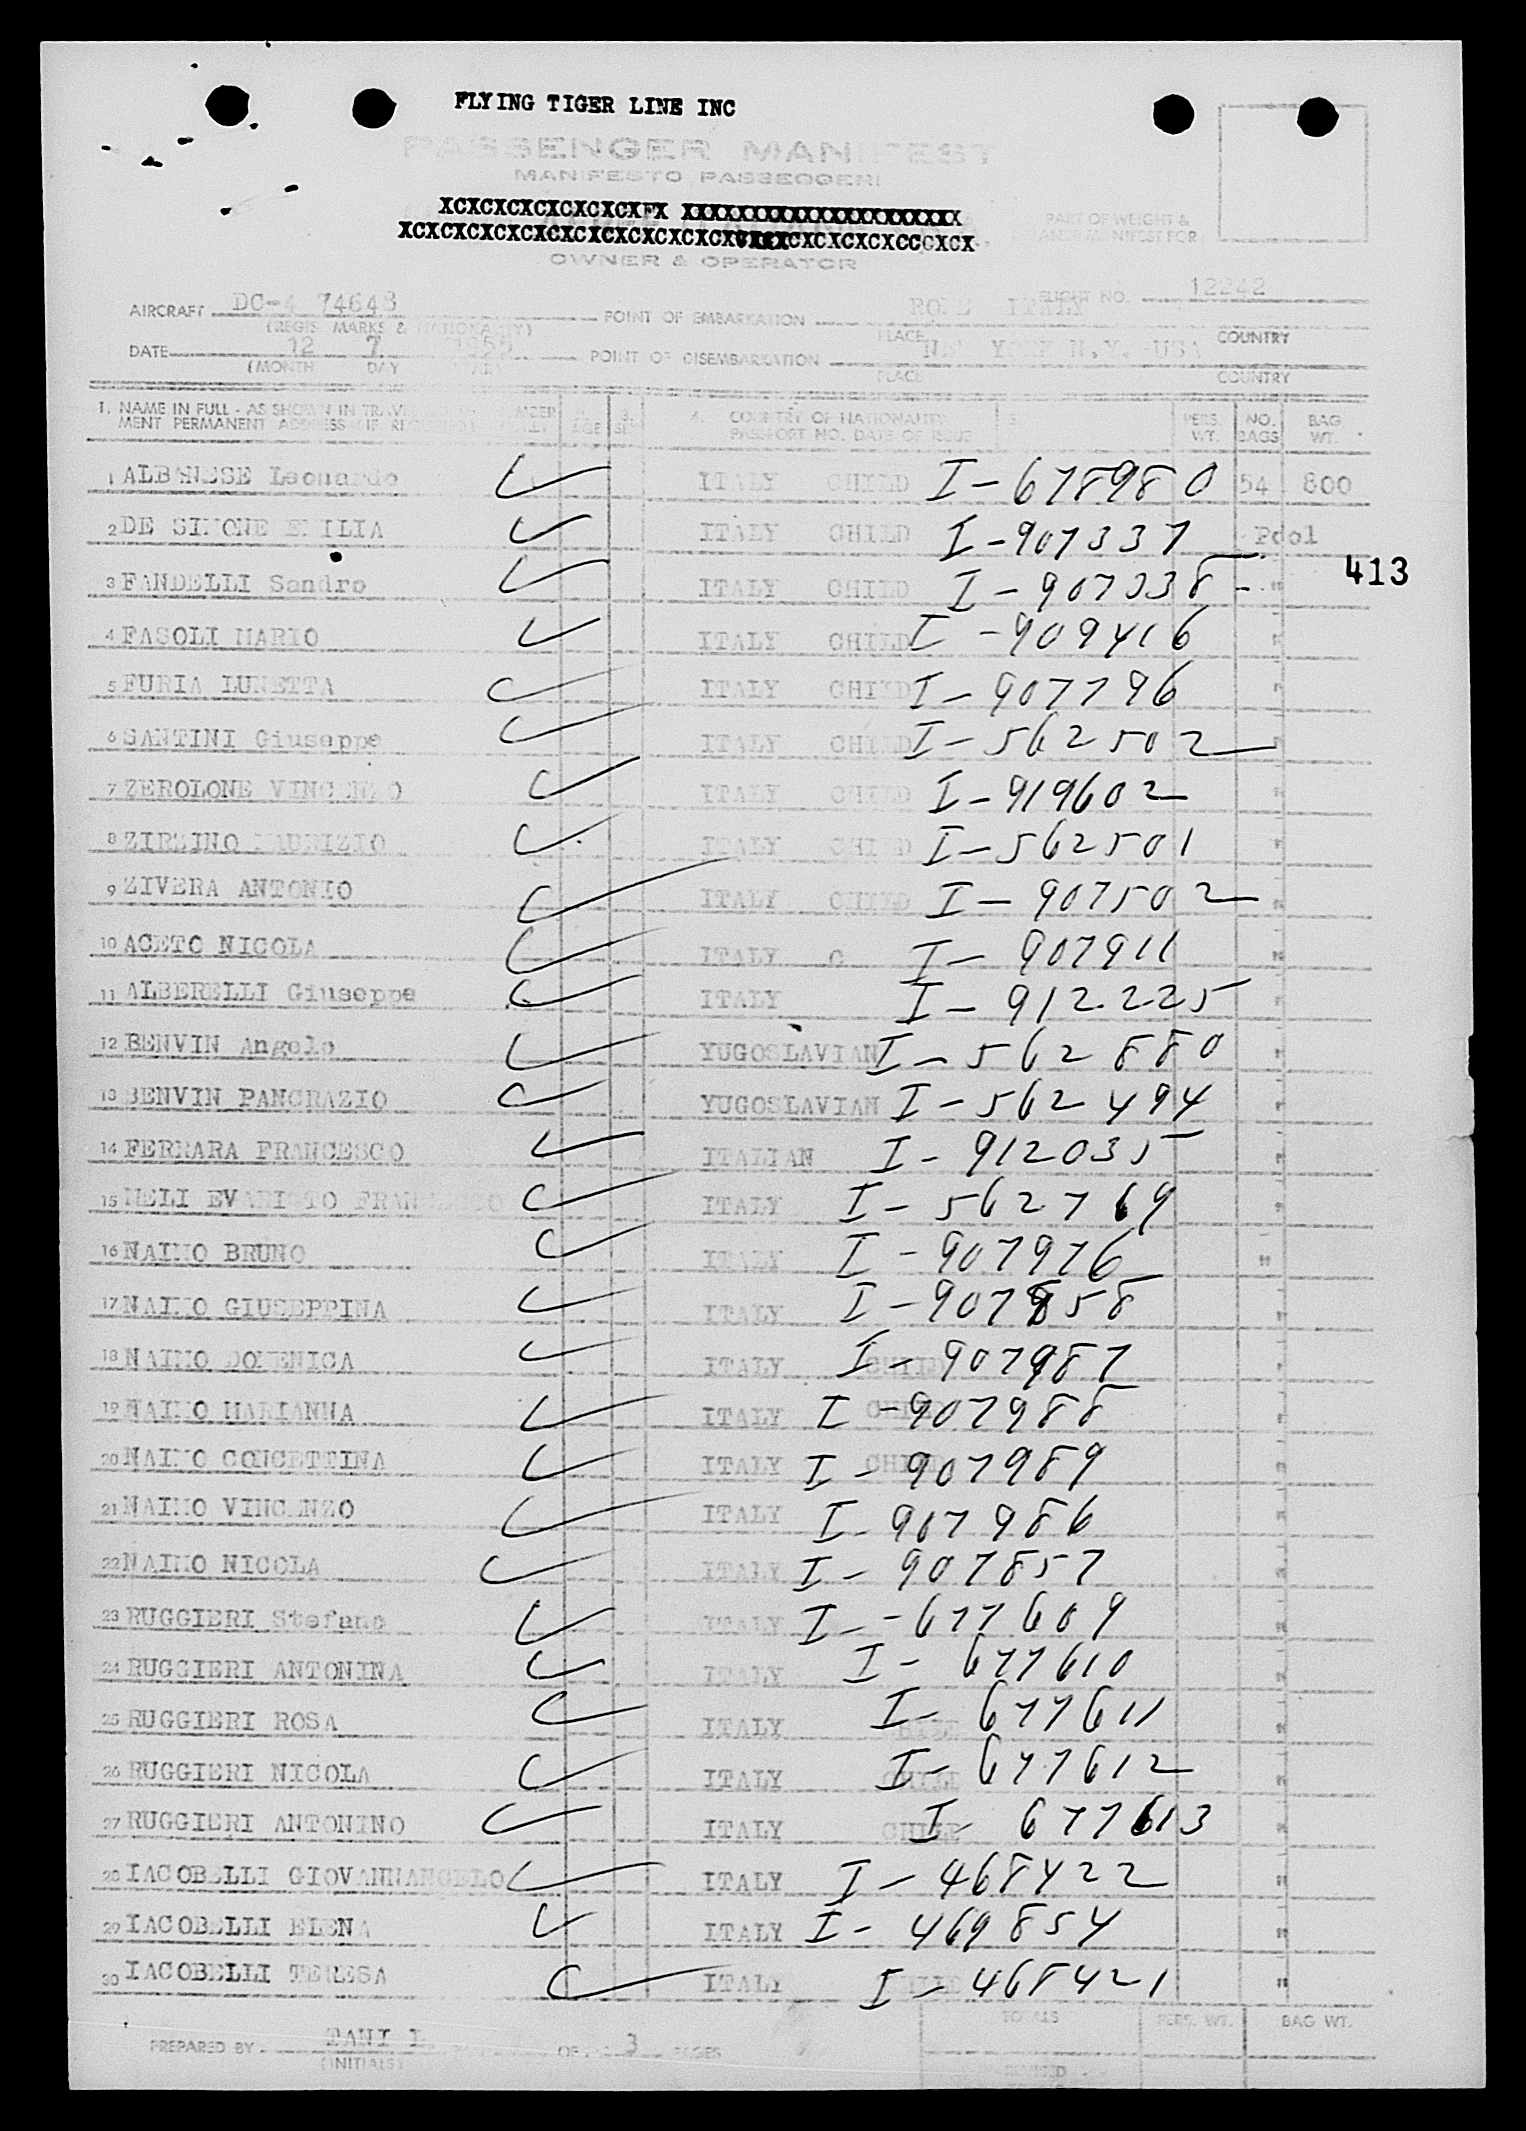 FLYING TIGER LINE INC
PASSENGER MANIFEST
MANIFESTO PASSEGGERI
XCXCXCXCXCXCXCXFX XXXXXXXXXXXXXXXXXXXXX
OWNER & OPERATOR
PART OF WEIGHT &
MANIFEST FOR
AIRCRAFT DC-4 74648 FLIGHT NO. 12242
(REGIS MARKS & NATIONALITY) POINT OF EMBARKATION ROME ITALY
PLACE COUNTRY
DATE 12 7 1955 POINT OF DISEMBARKATION NEW YORK N.Y. USA
(MONTH DAY YEAR) PLACE COUNTRY
1. NAME IN FULL - AS SHOWN IN TRAVEL AGE 3. SEX 4. COUNTRY OF NATIONALITY 5. PERS. WT. NO. BAGS BAG WT.
MENT PERMANENT ADDRESS IF PASSPORT NO. DATE OF ISSUE
1 ALBANESE Leonardo ITALY CHILD I-678980 54 800
2 DE SIMONE EMILIA ITALY CHILD I-907337 Pool
413
3 FANDELLI Sandro ITALY CHILD I-907338 "
4 FASOLI MARIO ITALY CHILD I-909416 "
5 FURIA LUNETTA ITALY CHILD I-907796 "
6 SANTINI Giuseppe ITALY CHILD I-562502 "
7 ZEROLONE VINCENZO ITALY CHILD I-919602 "
8 ZIRZINO MAURIZIO ITALY CHILD I-562501 "
9 ZIVERA ANTONIO ITALY CHILD I-907502 "
10 ACETO NICOLA ITALY C I-907911 "
11 ALBERELLI Giuseppe ITALY I-912225 "
12 BENVIN Angelo YUGOSLAVIAN I-562880 "
13 BENVIN PANCRAZIO YUGOSLAVIAN I-562494 "
14 FERRARA FRANCESCO ITALIAN I-912035 "
15 MELI EVARISTO FRANCESCO ITALY I-562769 "
16 NAIMO BRUNO ITALY I-907976 "
17 NAIMO GIUSEPPINA ITALY I-907858 "
18 NAIMO DOMENICA ITALY CHILD I-907987 "
19 NAIMO MARIANNA ITALY CHILD I-907988 "
20 NAIMO CONCETTINA ITALY CHILD I-907989 "
21 NAIMO VINCENZO ITALY I-907986 "
22 NAIMO NICOLA ITALY I-907857 "
23 RUGGIERI Stefano ITALY I-677609 "
24 RUGGIERI ANTONINA ITALY I-677610 "
25 RUGGIERI ROSA ITALY CHILD I-677611 "
26 RUGGIERI NICOLA ITALY CHILD I-677612 "
27 RUGGIERI ANTONINO ITALY CHILD I-677613 "
28 IACOBELLI GIOVANNANGELO ITALY I-468422 "
29 IACOBELLI ELENA ITALY I-469854 "
30 IACOBELLI TERESA ITALY CHILD I-468421 "
TOTALS PERS. WT. BAG WT.
PREPARED BY TANI OF 3 PAGES
(INITIALS) REVISED